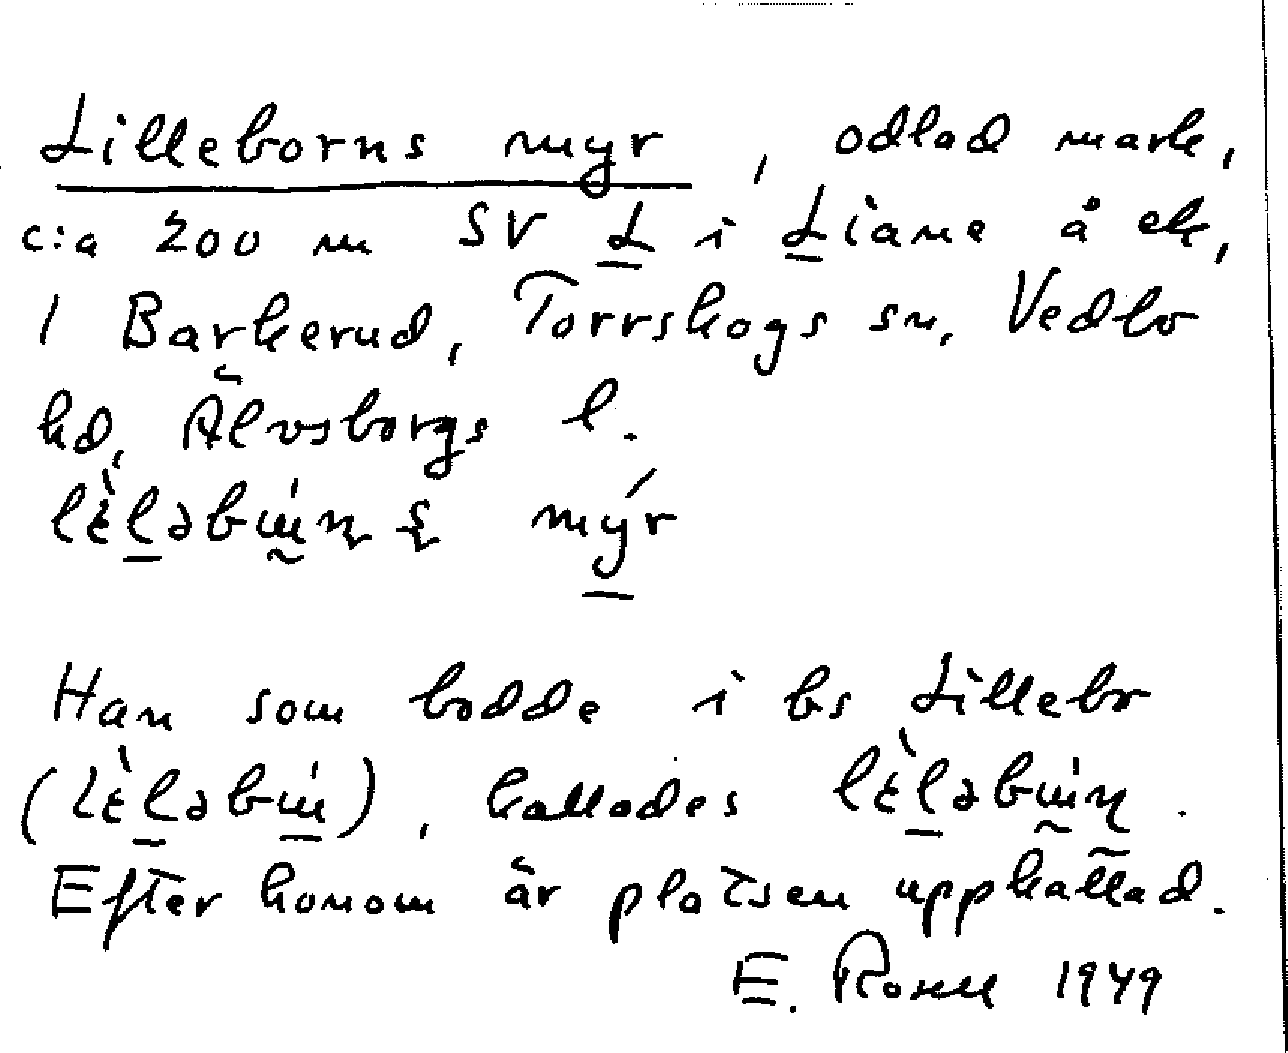 Lilleborns myr, odlad mark,
c:a 200 m SV L i Liane å ek,
1 Barkerud, Torrskogs sn, Vedbo
hd, Älvsborgs l.
myr
Han som bodde i bs Lillebo
kallades
Efter honom är platsen uppkallad.
E. Rosell 1949